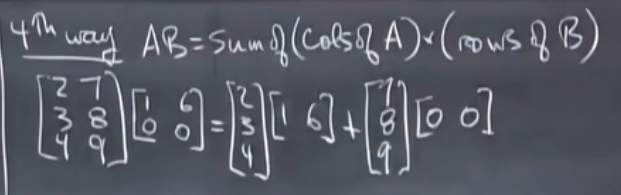 4th way AB = Sum of (Cols of A) × (rows of B)
[2 7; 3 8; 4 9] [1 6; 0 0] = [2; 3; 4] [1 6] + [7; 8; 9] [0 0]